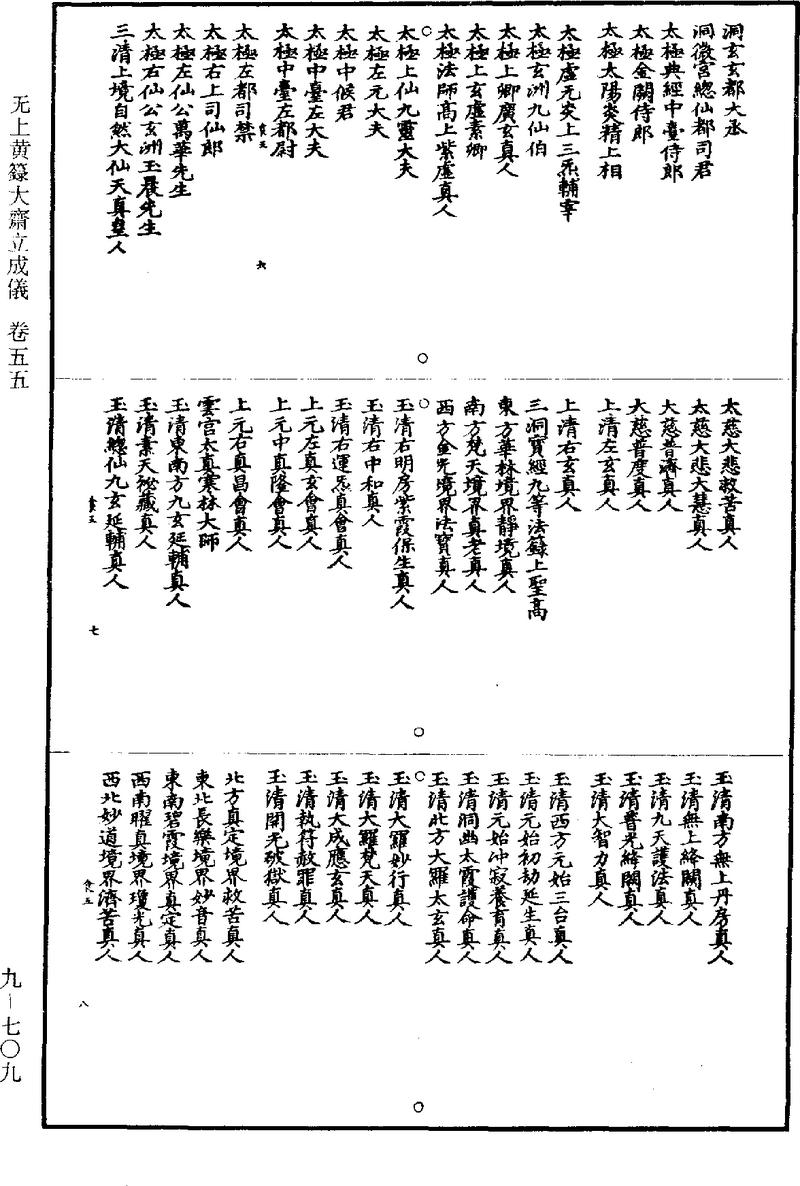 洞玄玄都大丞
洞微宮總仙都司君
太極典經中臺侍郎
太極金闕侍郎
太極太陽炎精上相
太極虛无炎上三炁輔宰
太極玄洲九仙伯
太極上卿廣玄真人
太極上玄虛素卿
太極法師高上紫虛真人
太極上仙九靈大夫
太極左元大夫
太極中候君
太極中臺左大夫
太極中臺左都尉
食五
六
太極左都司禁
太極右上司仙郎
太極左仙公萬華先生
太極右仙公玄洲玉晨先生
三清上境自然大仙天真皇人
太慈大悲救苦真人
太慈大悲大慧真人
大慈普濟真人
大慈普度真人
上清左玄真人
上清右玄真人
三洞寶經九等法籙上聖高
東方華林境界靜境真人
南方梵天境界真老真人
西方金光境界法寶真人
玉清右明房紫霞保生真人
玉清右中和真人
玉清右運炁真會真人
上元左真玄會真人
上元中真隆會真人
上元右真昌會真人
雲宮太真寒林大師
玉清東南方九玄延輔真人
玉清素天祕藏真人
玉清總仙九玄延輔真人
食五
七
玉清南方無上丹房真人
玉清無上絳闕真人
玉清九天護法真人
玉清普光絳闕真人
玉清大智力真人
玉清西方元始三台真人
玉清元始初劫延生真人
玉清元始冲寂養育真人
玉清洞幽太霞護命真人
玉清北方大羅太玄真人
玉清大羅妙行真人
玉清大羅梵天真人
玉清大成應玄真人
玉清執符赦罪真人
玉清開光破獄真人
北方真定境界救苦真人
東北長樂境界妙音真人
東南碧霞境界真定真人
西南曜真境界瓊光真人
西北妙道境界濟苦真人
食五
八
无上黄籙大齋立成儀 卷五五
九—七〇九